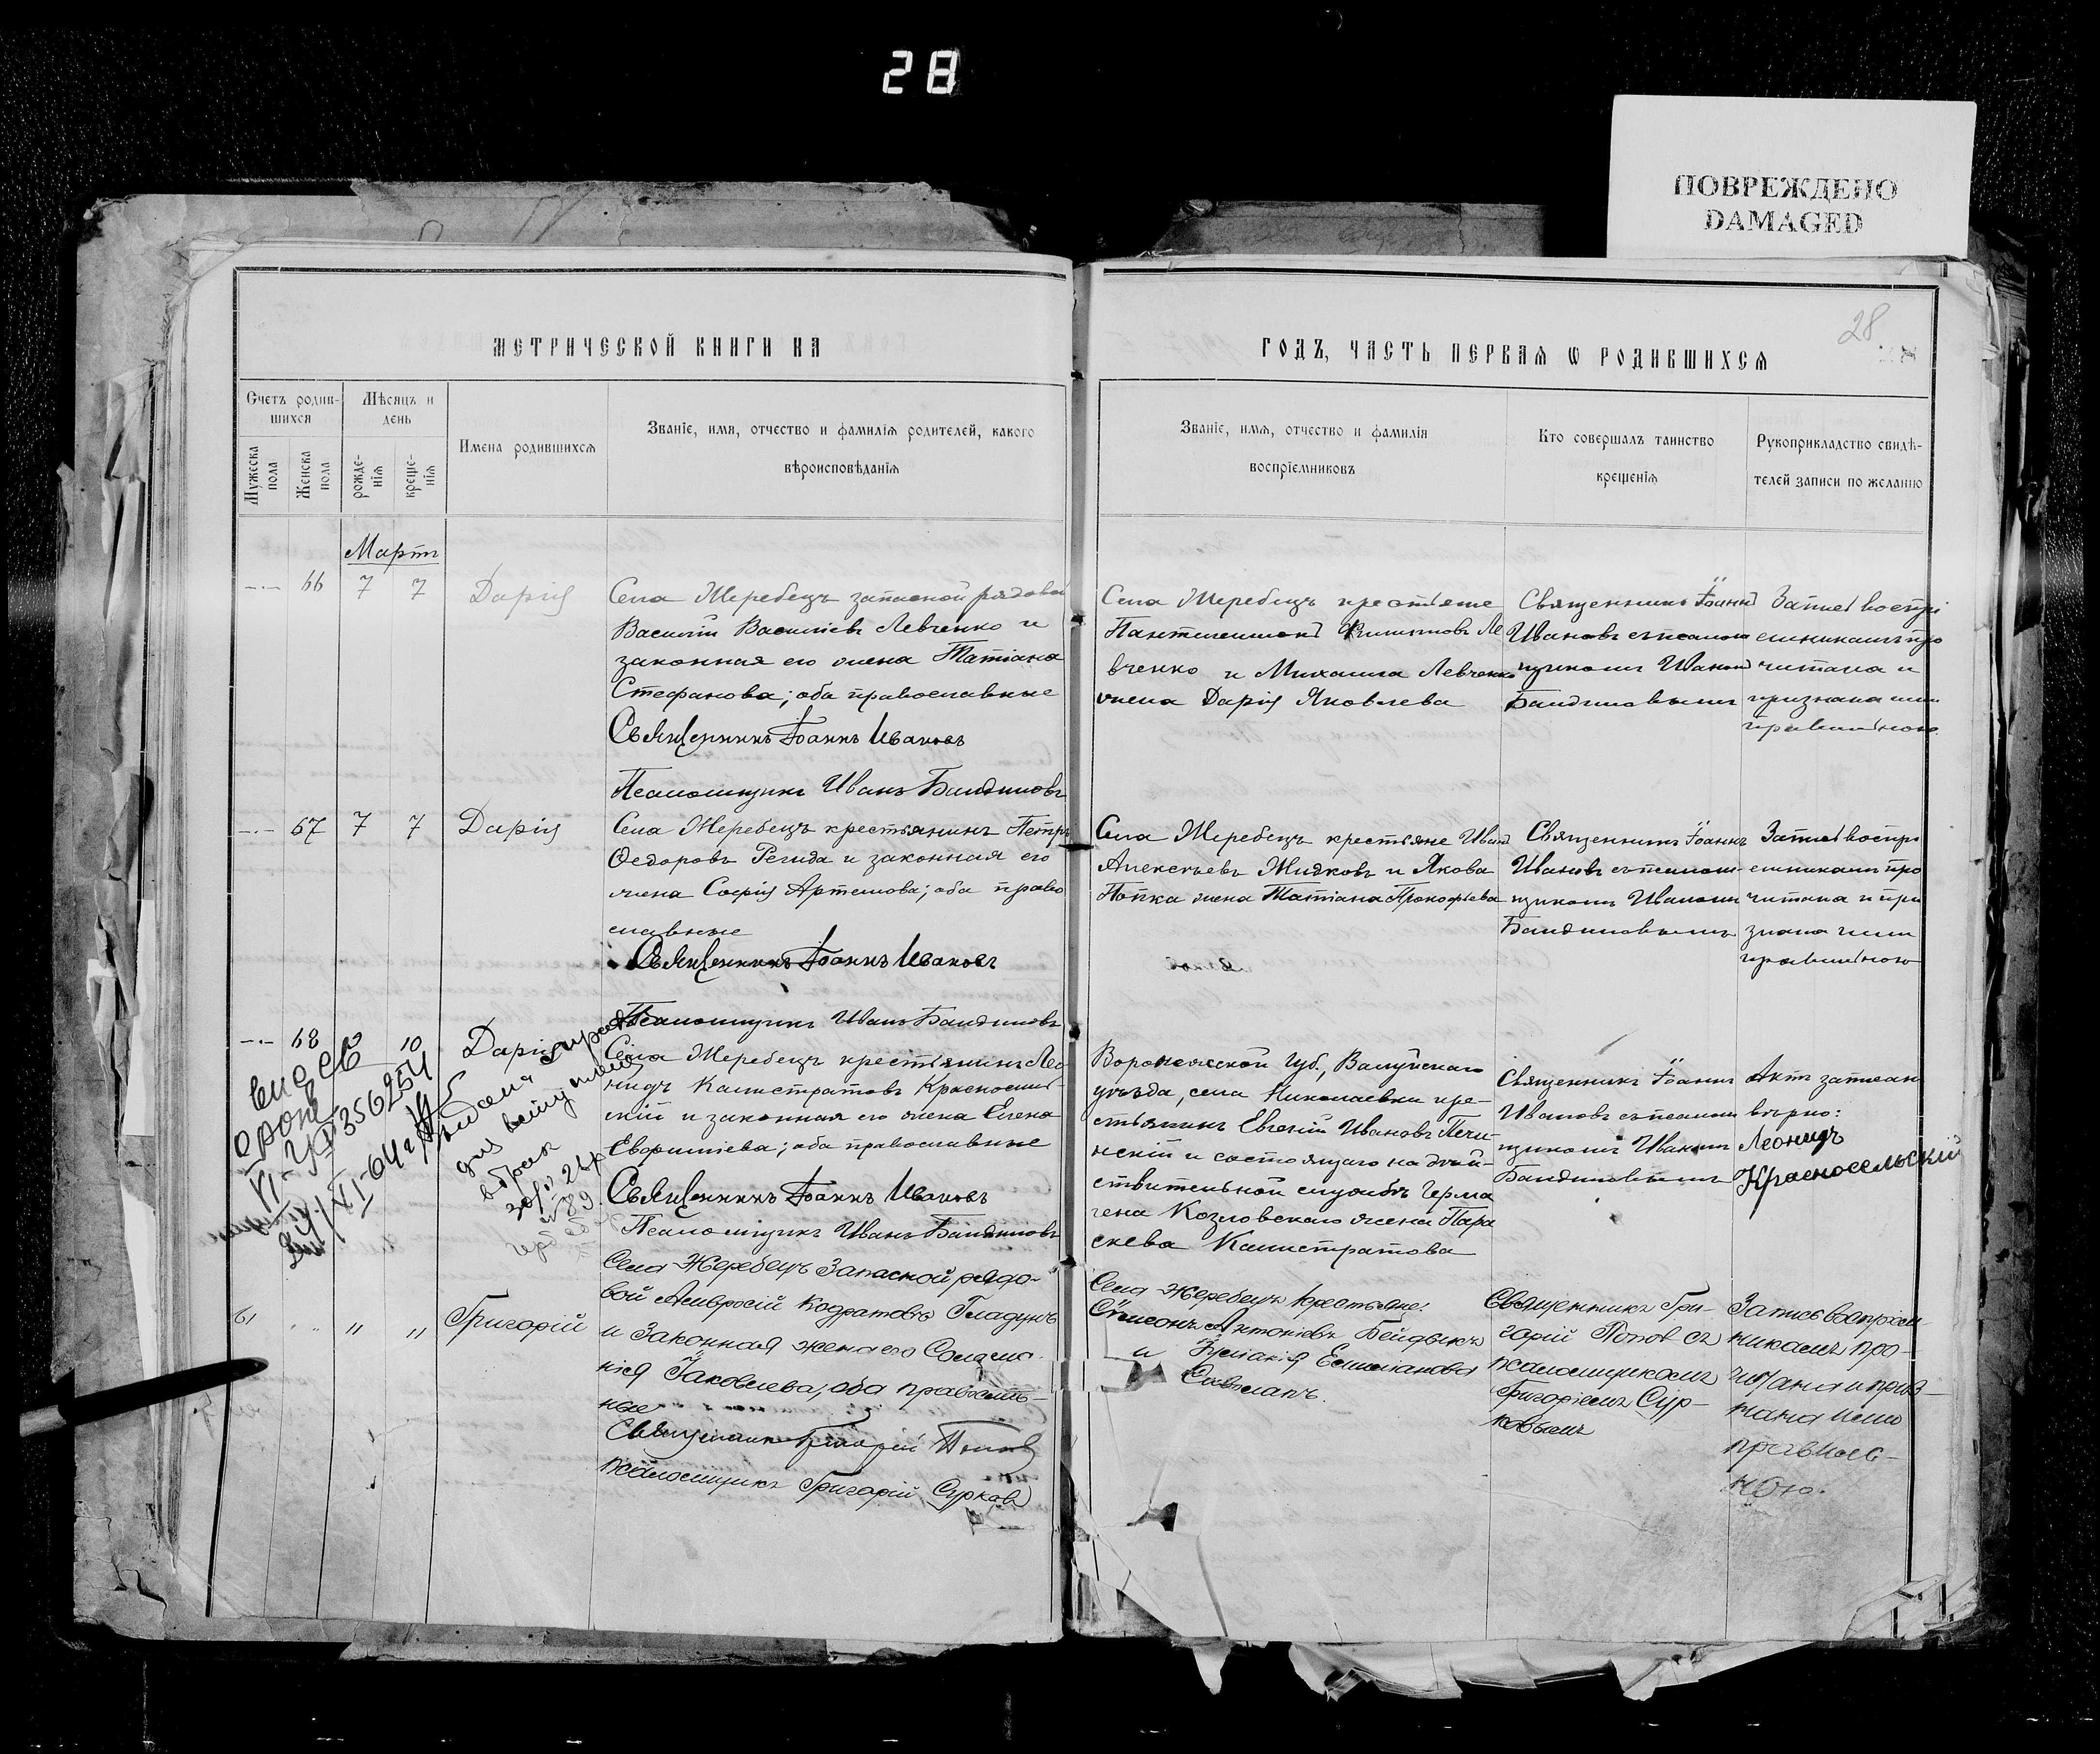 28
ПОВРЕЖДЕНО
DAMAGED
28
МЕТРИЧЕСКОЙ КНИГИ НА
ГОДЪ, ЧАСТЬ ПЕРВАЯ Ѡ РОДИВШИХСЯ
Счетъ родив-
шихся
Мужеска
пола
Женска
пола
Мѣсяцъ и
день
рожде-
нія
креще-
нія
Имена родившихся
Званіе, имя, отчество и фамилія родителей, какого
вѣроисповѣданія
Званіе, имя, отчество и фамилія
воспріемниковъ
Кто совершалъ таинство
крещенія
Рукоприкладство свидѣ-
телей записи по желанію
Мартъ
66 7 7 Дарія
Села Жеребецъ запасной рядовой
Василій Василіевъ Левченко и
законная его жена Татіана
Стефанова; оба православные
Священникъ Іоаннъ Ивановъ
Псаломщикъ Иванъ
Села Жеребецъ крестьяне
Пантелеимонъ Филиповъ Ле
вченко и Михаила Левченко
жена Дарія Яковлева
Священникъ Іоаннъ
Ивановъ съ псалом
щикомъ Иваномъ
Запись воспрі
емникамъ про
читана и
признана ими
правильною
67 7 7 Дарія
Села Жеребецъ крестьянинъ Петръ
Ѳедоровъ Регида и законная его
жена Софія Артемова; оба право
славные
Священникъ Іоаннъ Ивановъ
Псаломщикъ Иванъ
Села Жеребецъ крестьяне Иванъ
Алексѣевъ Жидковъ и Якова
Попка жена Татіана Прокофьева
Священникъ Іоаннъ
Ивановъ съ псалом-
щикомъ Иваномъ
Запись воспрі
емникамъ про
читана и при
знана ими
правильною
68 10 Дарія
Села Жеребецъ крестьянинъ Лео
нидъ Калистратовъ Красносель-
скій и законная его жена Елена
Евфиміева; оба православные
Священникъ Іоаннъ Ивановъ
Псаломщикъ Иванъ
Воронежской губ., Валуйскаго
уѣзда, села Николаевки кре-
стьянинъ Евгеній Ивановъ Печи-
нскій и состоящаго на дѣй-
ствительной службѣ Герма
гена Козловскаго жена Пара
скева Калистратова
Священникъ Іоаннъ
Ивановъ съ псалом
щикомъ Иваномъ
Актъ записанъ
вѣрно:
Леонидъ
Красносельскій
356254
61 " " Григорій
Села Жеребецъ Запасной рядо-
вой Амвросій Кодратовъ Гладунъ
и Законная жена его Соломо
нія Іаковлева; оба православ-
ные
Священникъ Григорій Поповъ
псаломщикъ Григорій Сурков
Села Жеребецъ крестьяне:
Сѵмеонъ Антоніевъ
и
Священникъ Гри-
горій Попов съ
псаломщикомъ
Григоріемъ Сур-
ковымъ
Запись воспріем
никамъ про-
читана и приз-
нана ими
правиль-
ною.